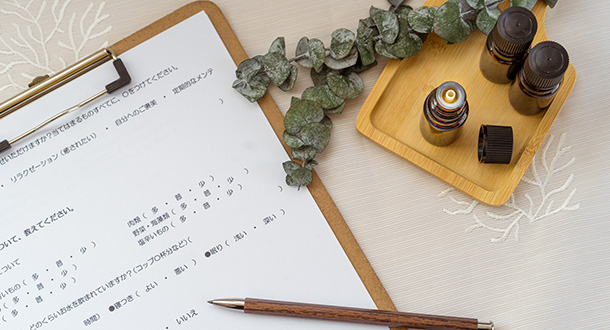 せいただけますか?当てはまるものすべてに、○をつけてください。
・ リラクゼーション(癒されたい) ・ 自分へのご褒美 ・ 定期的なメンテ
)
ついて、教えてください。
について
( 多 ・ 普 ・ 少 ) 肉類( 多 ・ 普 ・ 少 )
いもの( 多 ・ 普 ・ 少 ) 野菜・海藻類( 多 ・ 普 ・ 少 )
( 多 ・ 普 ・ 少 ) 塩辛いもの( 多 ・ 普 ・ 少 )
どのくらいお水を飲まれていますか?(コップ○杯分など)(
時間) ●寝つき( よい ・ 悪い ) ●眠り( 浅い ・ 深い )
・ いいえ